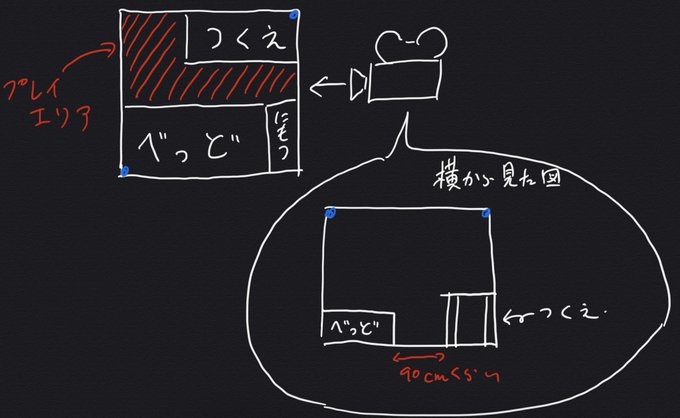 つくえ
プレイ
エリア
べっど
にもつ
横から見た図
べっど
つくえ
90cmくらい